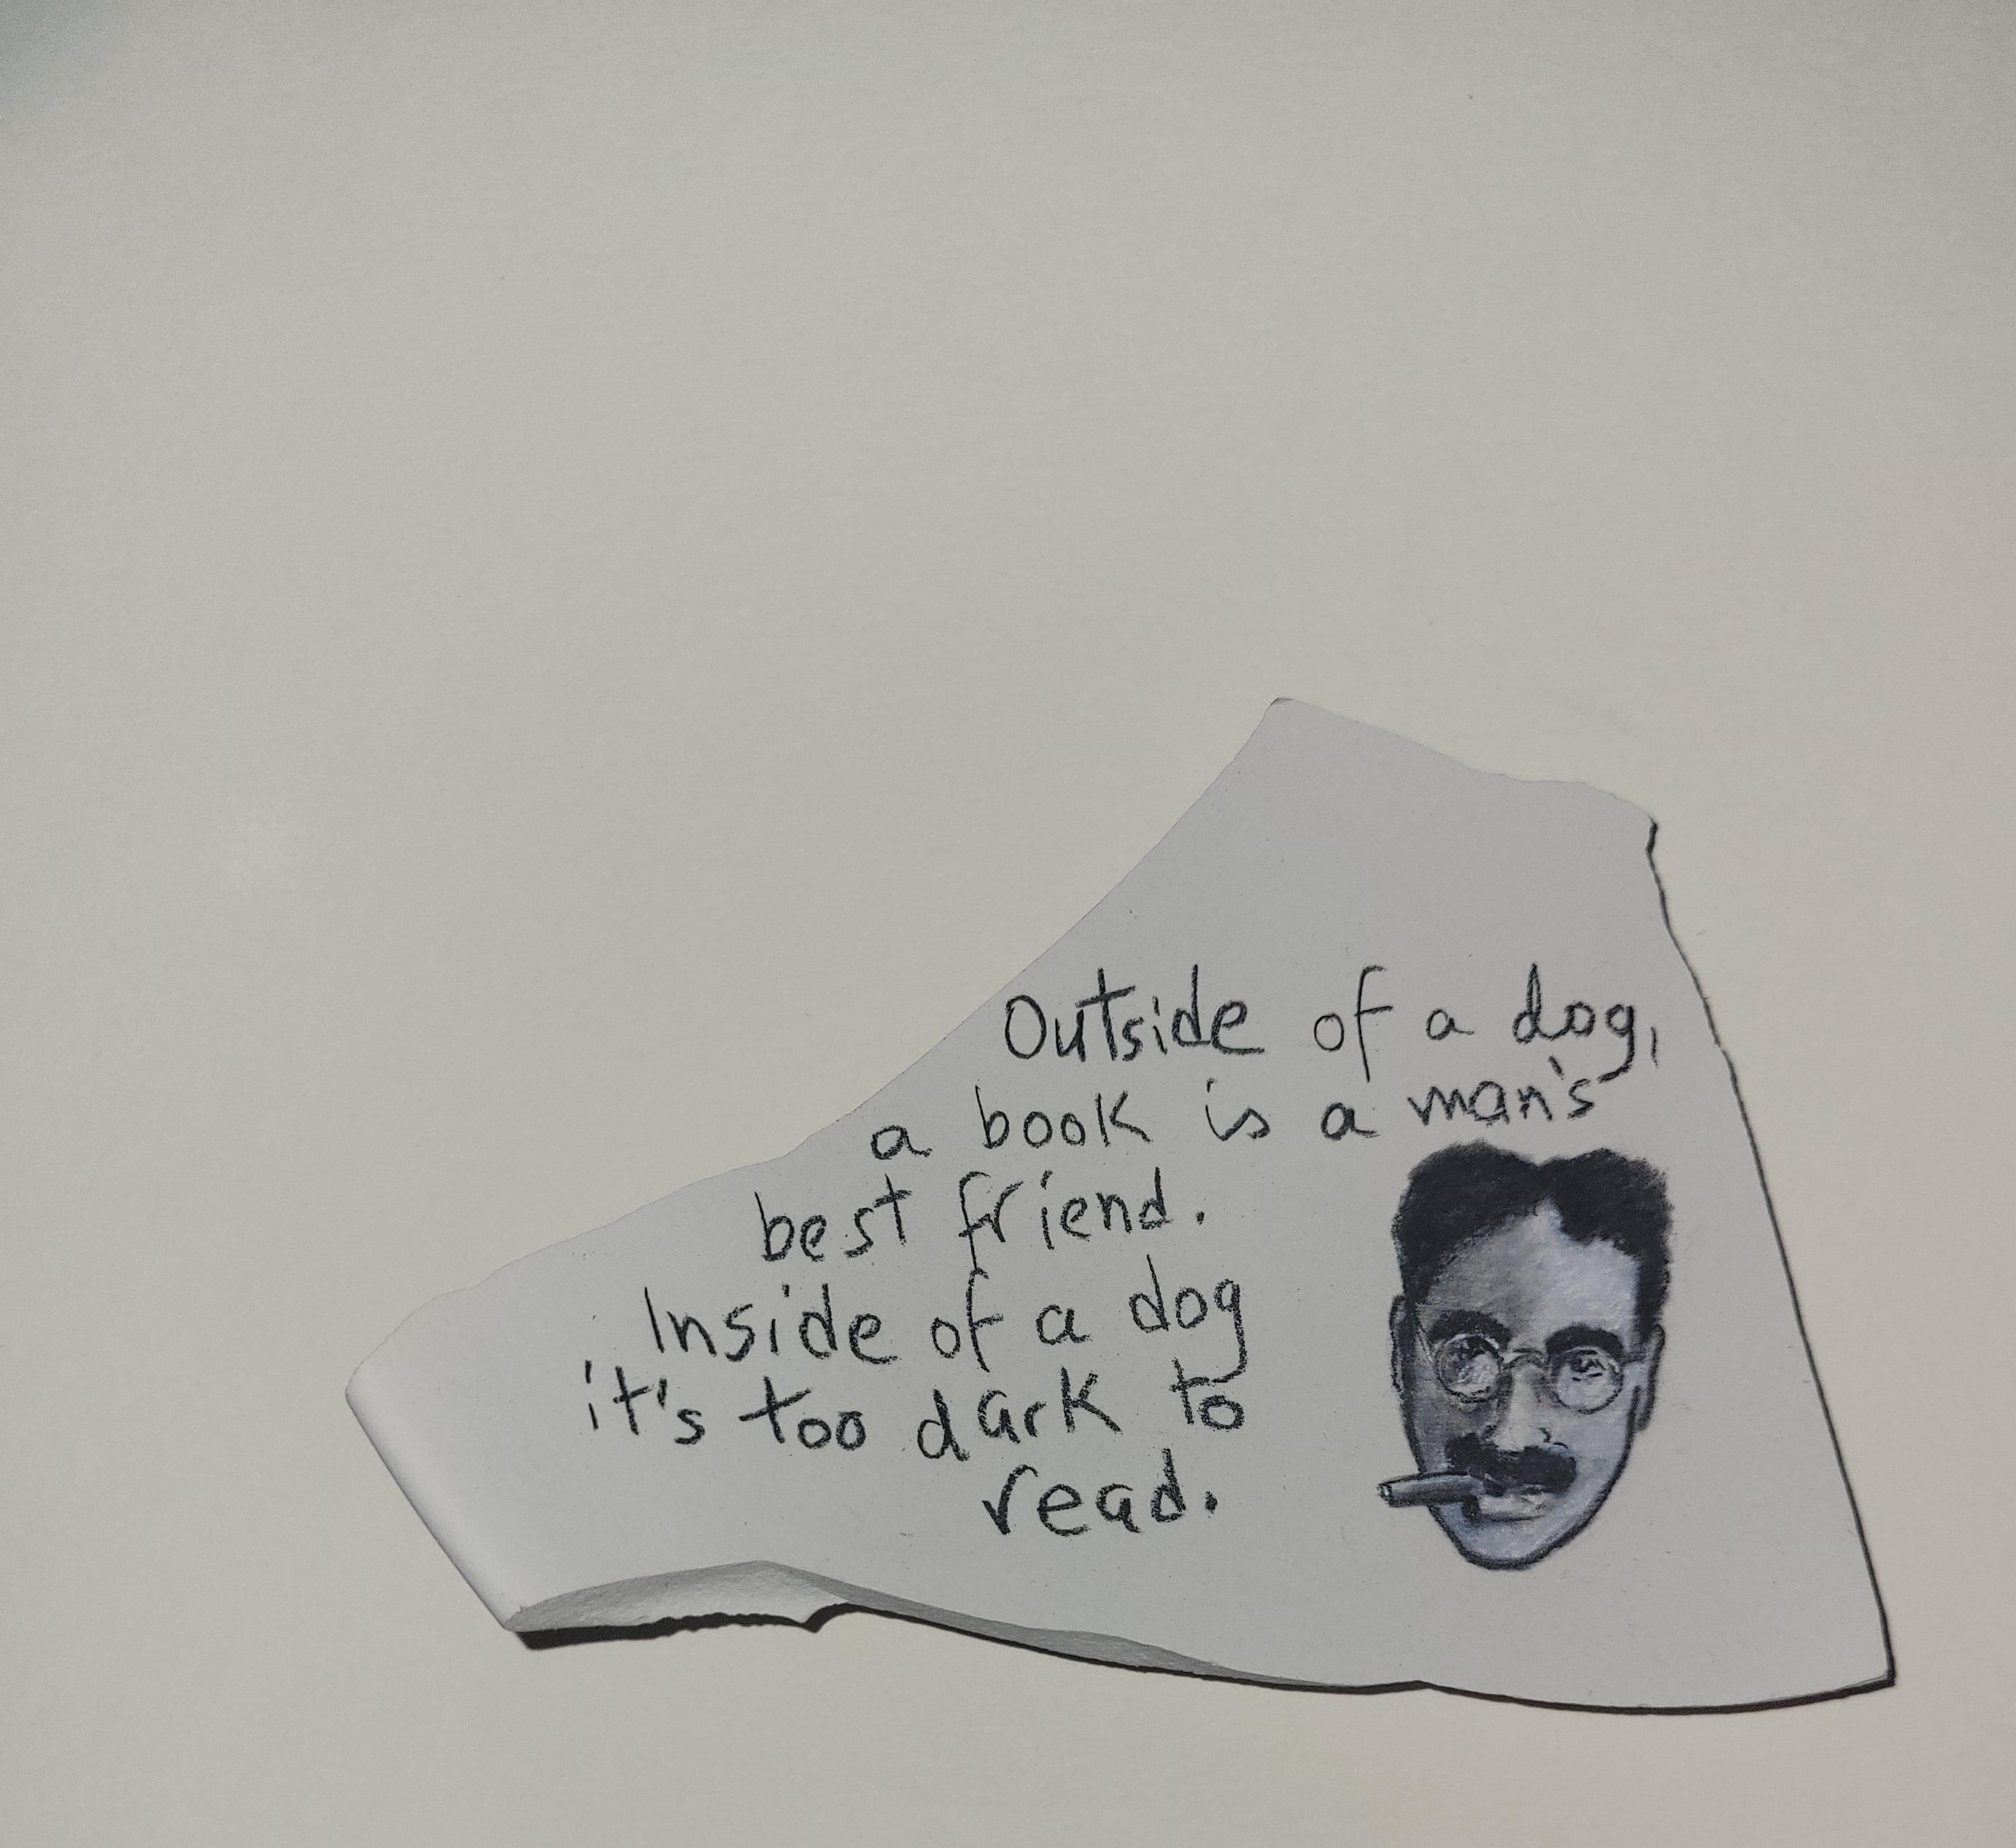 Outside of a dog,
a book is a man's
best friend.
Inside of a dog
it's too dark to
read.